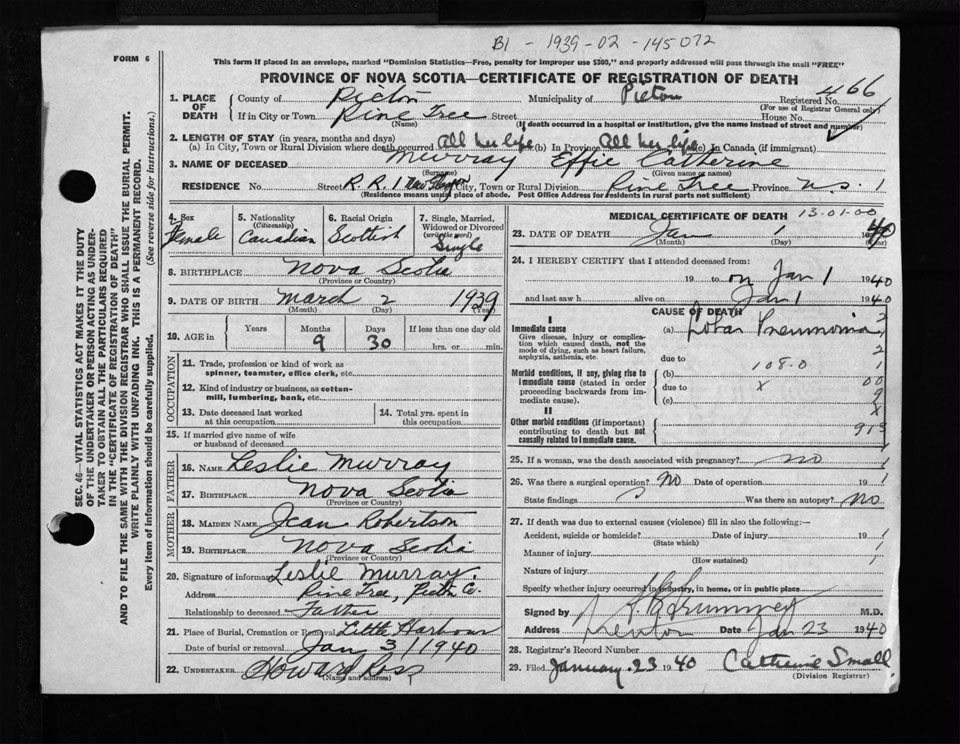 B1 - 1939-02-145072
FORM 6
This form if placed in an envelope, marked "Dominion Statistics—Free, penalty for improper use $300," and properly addressed will pass through the mail "FREE"
PROVINCE OF NOVA SCOTIA—CERTIFICATE OF REGISTRATION OF DEATH
1. PLACE OF DEATH County of Pictou Municipality of Pictou Registered No. 466
(For use of Registrar General only)
If in City or Town Pine Tree Street House No.
(Name) (If death occurred in a hospital or institution, give the name instead of street and number)
2. LENGTH OF STAY (in years, months and days)
(a) In City, Town or Rural Division where death occurred All her life (b) In Province All her life (c) In Canada (if immigrant)
3. NAME OF DECEASED Murray Effie Catherine
(Surname) (Given name or names)
RESIDENCE No. Street R. R. 1 New Glasgow City, Town or Rural Division Pine Tree Province N.S. 1
(Residence means usual place of abode. Post Office Address for Residents in rural parts not sufficient)
4. Sex Female
5. Nationality (Citizenship) Canadian
6. Racial Origin Scottish
7. Single, Married, Widowed or Divorced (write the word) Single
8. BIRTHPLACE Nova Scotia
(Province or Country)
9. DATE OF BIRTH March 2 1939
(Month) (Day) (Year)
10. AGE in Years Months 9 Days 30 If less than one day old hrs. or min.
OCCUPATION
11. Trade, profession or kind of work as spinner, teamster, office clerk, etc.
12. Kind of industry or business, as cotton-mill, lumbering, bank, etc.
13. Date deceased last worked at this occupation
14. Total yrs. spent in this occupation
15. If married give name of wife or husband of deceased
FATHER
16. NAME Leslie Murray
17. BIRTHPLACE Nova Scotia
(Province or Country)
MOTHER
18. MAIDEN NAME Jean Robertson
19. BIRTHPLACE Nova Scotia
(Province or Country)
20. Signature of informant Leslie Murray.
Address Pine Tree, Pictou Co.
Relationship to deceased Father
21. Place of Burial, Cremation or Removal Little Harbour
Date of burial or removal Jan 3/1940
22. UNDERTAKER Howard Ross
(Name and address)
MEDICAL CERTIFICATE OF DEATH 13-01-00
23. DATE OF DEATH Jan 1 1940
(Month) (Day) (Year)
24. I HEREBY CERTIFY that I attended deceased from:
19 to on Jan 1 1940
and last saw h alive on Jan 1 1940
CAUSE OF DEATH
I
Immediate cause
Give disease, injury or complication which caused death, not the mode of dying, such as heart failure, asphyxia, asthenia, etc.
(a) Lobar Pneumonia 2
2
due to
Morbid conditions, if any, giving rise to immediate cause (stated in order proceeding backwards from immediate cause).
(b) 108.0 1
due to x 00
(c) 9
x
II
Other morbid conditions (if important) contributing to death but not causally related to immediate cause.
913
25. If a woman, was the death associated with pregnancy? no 1
26. Was there a surgical operation? No Date of operation 19 1
State findings Was there an autopsy? No
27. If death was due to external causes (violence) fill in also the following:—
Accident, suicide or homicide? Date of injury 19 1
(State which)
Manner of injury 1
(How sustained)
Nature of injury
Specify whether injury occurred in industry, in home, or in public place
Signed by M.D.
Address Trenton Date Jan 23 1940
28. Registrar's Record Number
29. Filed January 23 1940 Catherine Small
(Division Registrar)
SEC. 46—VITAL STATISTICS ACT MAKES IT THE DUTY
OF THE UNDERTAKER OR PERSON ACTING AS UNDER-
TAKER TO OBTAIN ALL THE PARTICULARS REQUIRED
IN THE "CERTIFICATE OF REGISTRATION OF DEATH"
AND TO FILE THE SAME WITH THE DIVISION REGISTRAR WHO SHALL ISSUE THE BURIAL PERMIT.
WRITE PLAINLY WITH UNFADING INK. THIS IS A PERMANENT RECORD.
Every item of information should be carefully supplied. (See reverse side for instructions.)